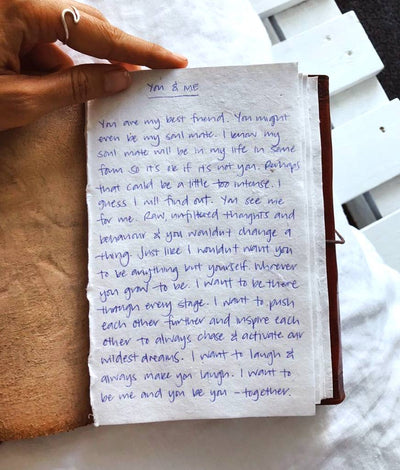 YOU & ME
You are my best friend. You might
even be my soul mate. I know my
soul mate will be in my life in some
form so it's ok if it's not you. Perhaps
that could be a little too intense. I
guess I will find out. You see me
for me. Raw, unfiltered thoughts and
behaviour & you wouldn't change a
thing. Just like I wouldn't want you
to be anything but yourself. Whoever
you grow to be. I want to be there
through every stage. I want to push
each other further and inspire each
other to always chase & activate our
wildest dreams. I want to laugh &
always make you laugh. I want to
be me and you be you - together.